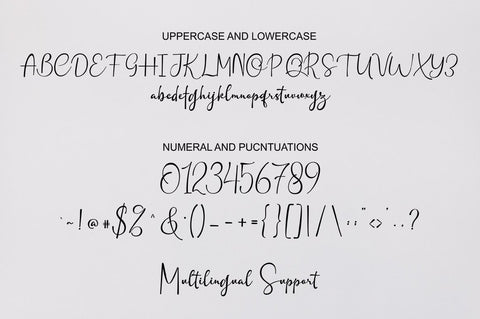 UPPERCASE AND LOWERCASE
ABCDEFGHIJKLMNOPQRSTUVWXYZ
abcdefghijklmnopqrstuvwxyz
NUMERAL AND PUCNTUATIONS
0123456789
`~!@#$%^&*()_-+={}[]|/\:;"'<>,.?
Multilingual Support